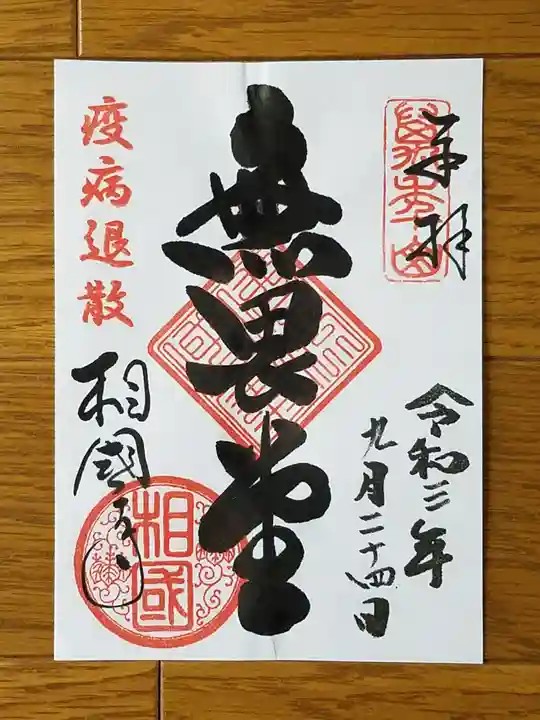 奉拝
令和三年
九月二十四日
無畏堂
疫病退散
相國寺
相國